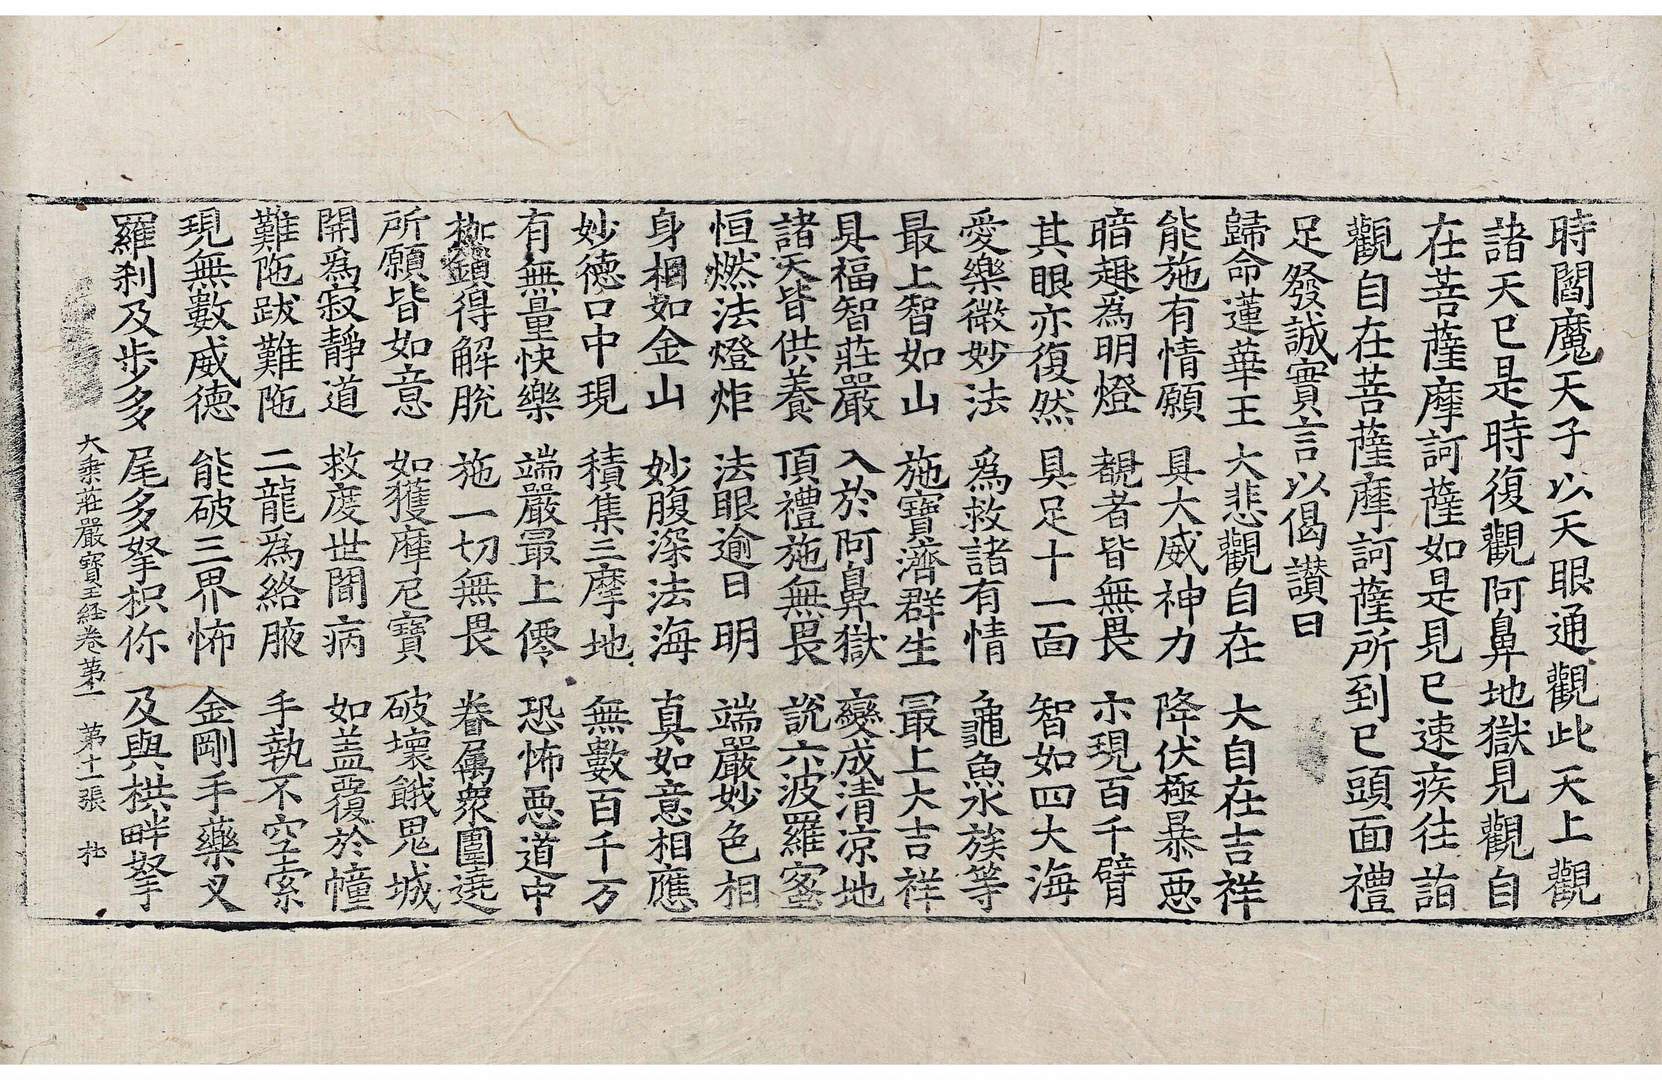 時閻魔天子以天眼通觀此天上觀
諸天已是時復觀阿鼻地獄見觀自
在菩薩摩訶薩如是見已速疾往詣
觀自在菩薩摩訶薩所到已頭面禮
足發誠實言以偈讚曰
歸命蓮華王　大悲觀自在　大自在吉祥
能施有情願　具大威神力　降伏極暴惡
暗趣為明燈　覩者皆無畏　示現百千臂
其眼亦復然　具足十一面　智如四大海
愛樂微妙法　為救諸有情　龜魚水族等
最上智如山　施寶濟群生　最上大吉祥
具福智莊嚴　入於阿鼻獄　變成清涼地
諸天皆供養　頂禮施無畏　說六波羅蜜
恒燃法燈炬　法眼逾日明　端嚴妙色相
身相如金山　妙腹深法海　真如意相應
妙德口中現　積集三摩地　無數百千万
有無量快樂　端嚴最上僊　恐怖惡道中
枷鎖得解脫　施一切無畏　眷属衆圍遶
所願皆如意　如獲摩尼寶　破壞餓鬼城
開為寂靜道　救度世間病　如盖覆於幢
難陁跋難陁　二龍為絡腋　手執不空索
現無數威德　能破三界怖　金剛手藥叉
羅刹及步多　尾多拏枳你　及與栱畔拏
大乘莊嚴寶王經卷第一　第十一張　杜